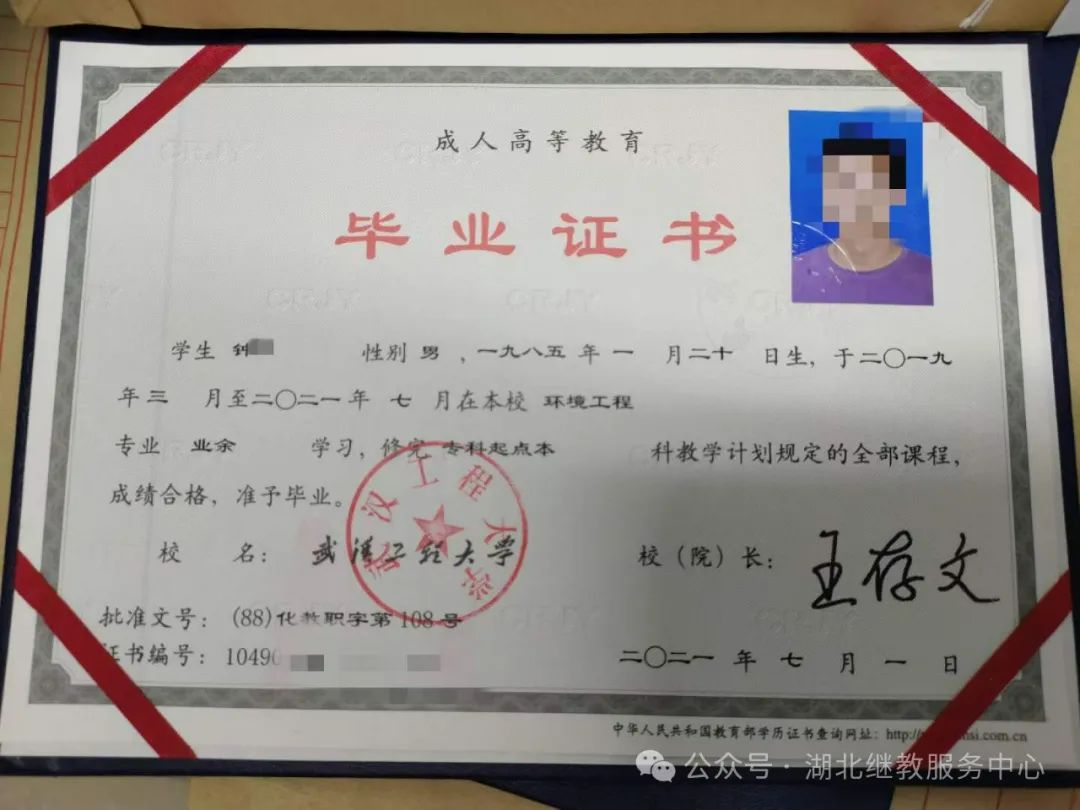 成人高等教育
毕业证书
学生 钟 性别 男 ，一九八五 年 一 月二十 日生，于二〇一九
年 三 月至二〇二一 年 七 月在本校 环境工程
专业 业余 学习，修完 专科起点本 科教学计划规定的全部课程，
成绩合格，准予毕业。
校 名： 武汉工程大学
校（院）长： 王存文
武汉工程大学
批准文号： (88)化教职字第108号
证书编号： 10490
二〇二一 年 七 月 一 日
中华人民共和国教育部学历证书查询网址： http://
si.com.cn
公众号 · 湖北继教服务中心